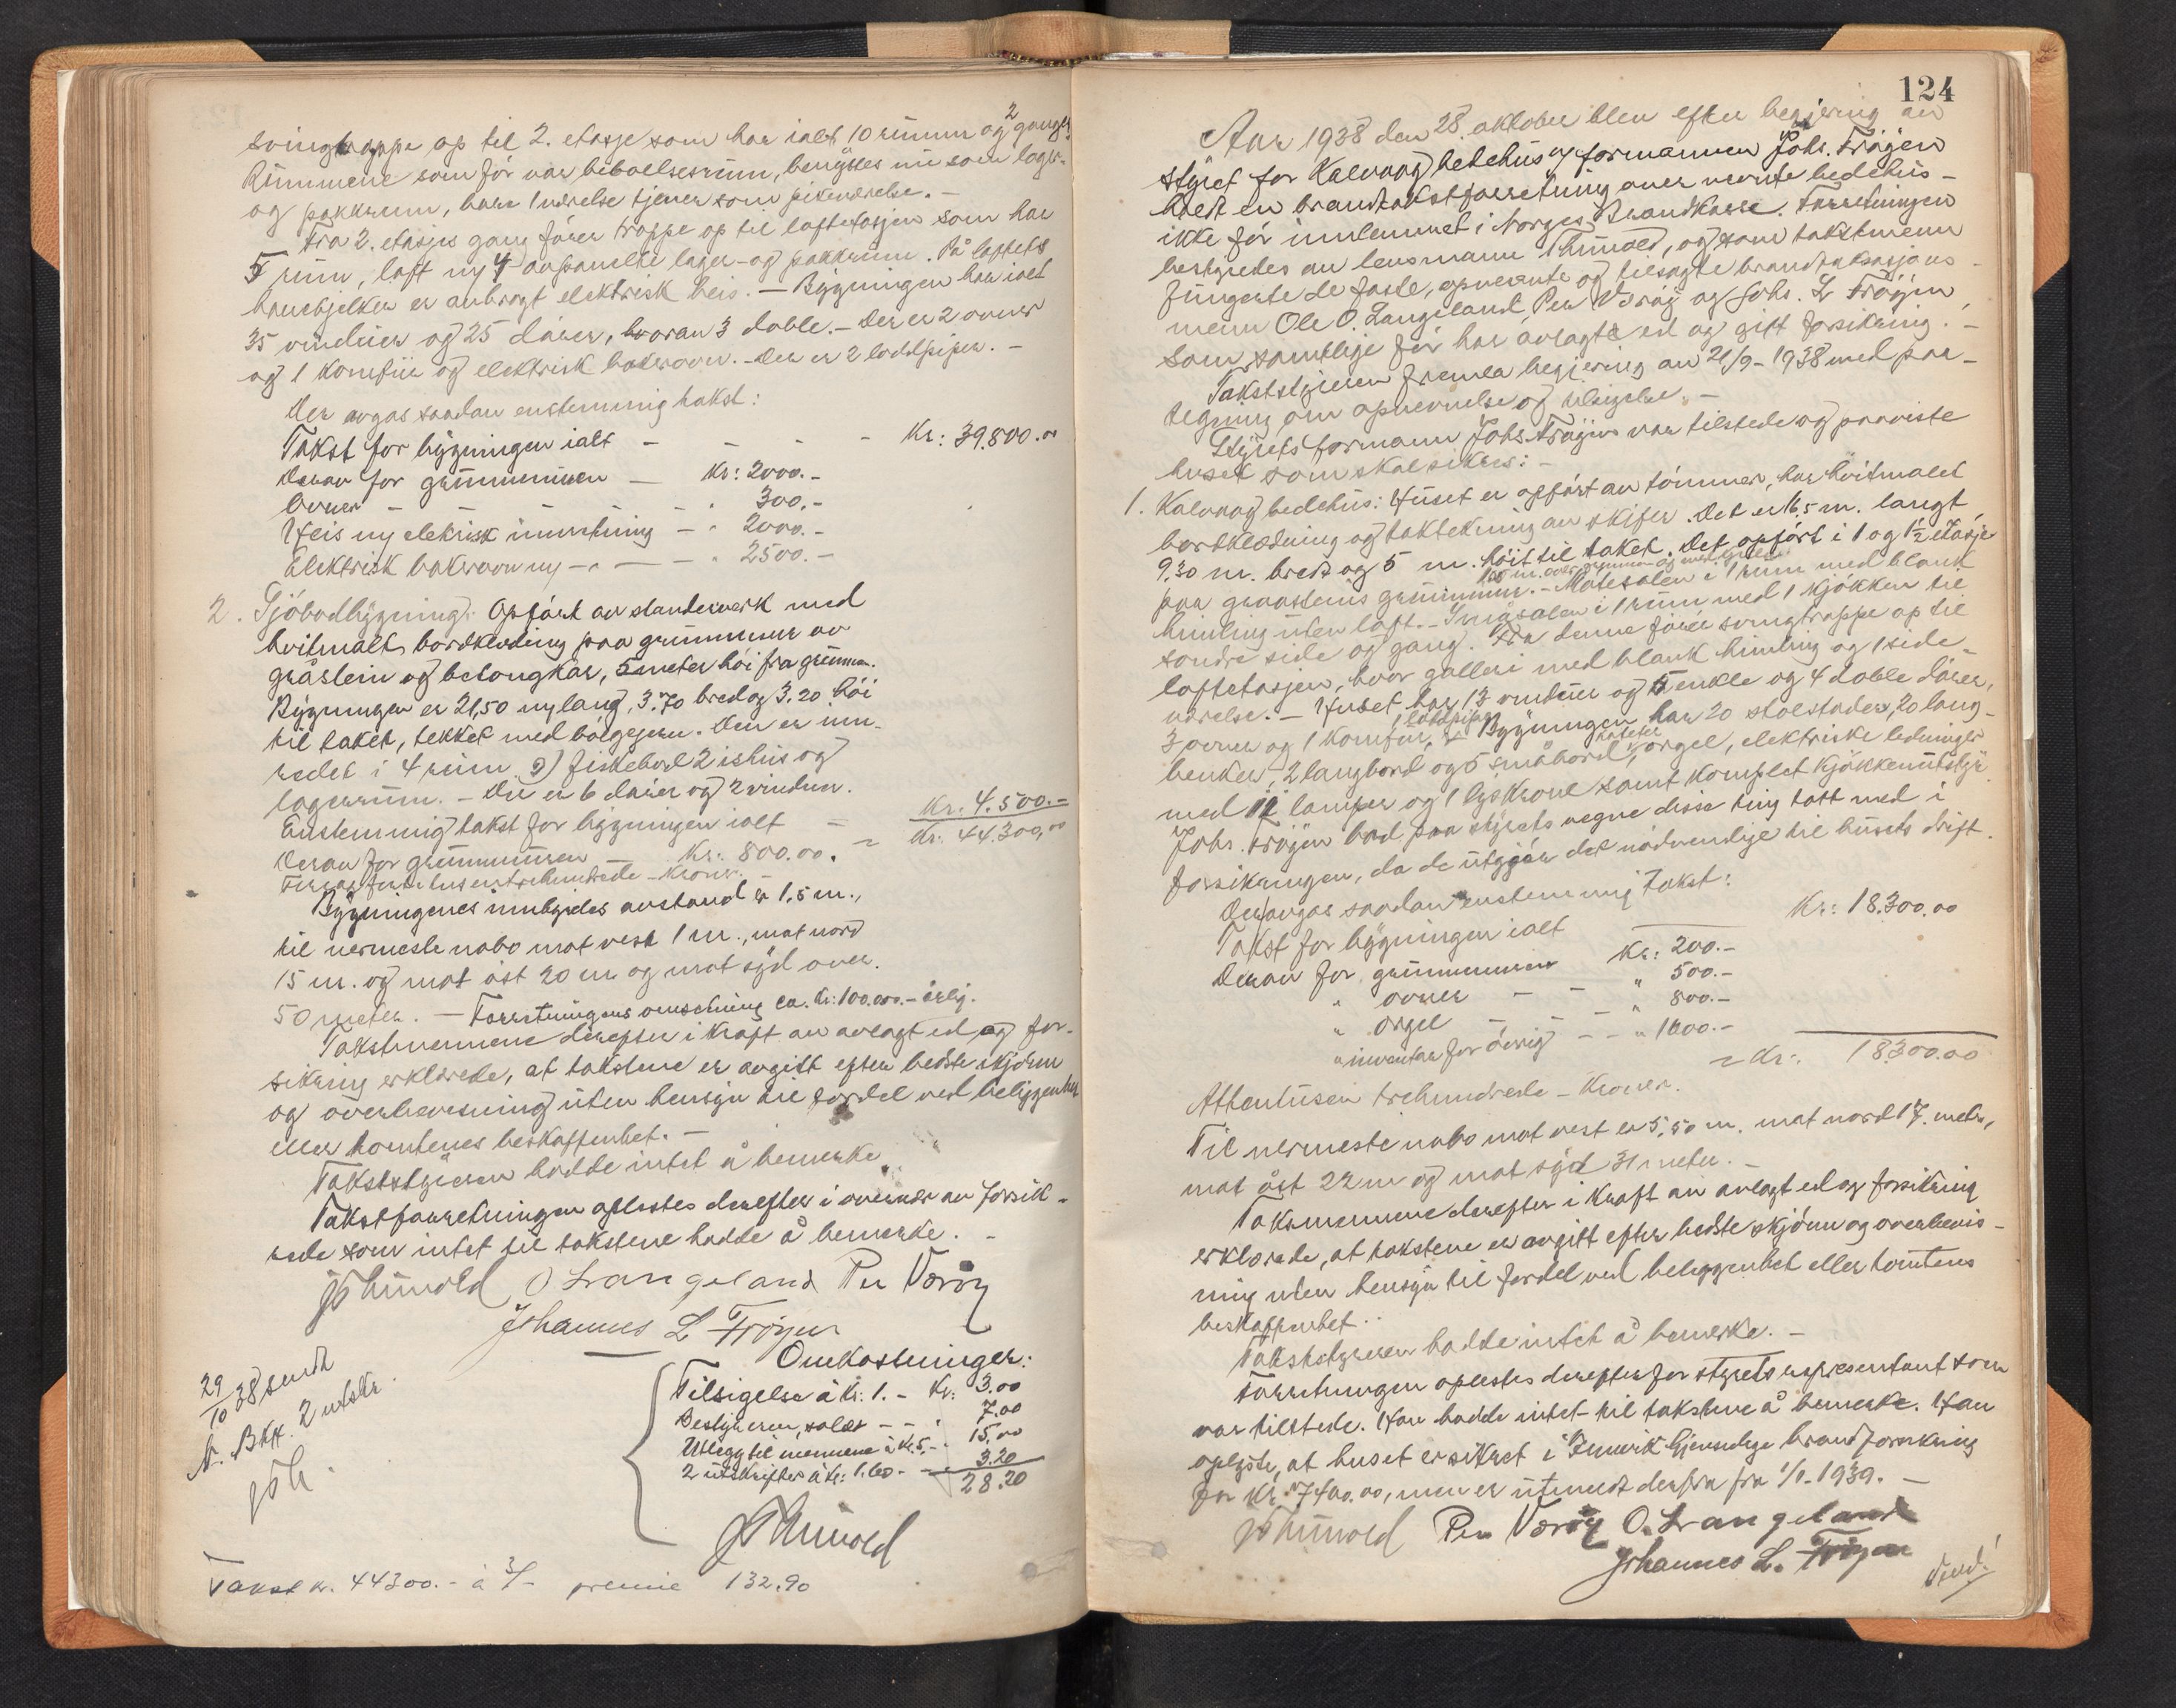 svingtrappe op til 2. etasje som har ialt 10 rumm og 2 ganger.
Rummene som før var beboelsesrum, benyttes nu som lager-
og pakkrum, bare 1 værelse tjener som pikeværelse. -
Fra 2. etasjes gang fører trappe op til loftetasjen som har
5 rum, loft og 4 avpanelte lager- og pakkrum. På loftets
hanebjelker er anbragt elektrisk heis. - Bygningen har ialt
35 vinduer og 25 dører, hvorav 3 doble. - Der er 2 ovner
og 1 komfur og elektrisk bakerovn. - Der er 2 loddpiper. -
Der avgas saadan enstemmig takst:
Takst for bygningen ialt - - - - Kr: 39.800.00
Derav for grunnmuren - Kr: 2000.-
Ovner - - - - " 300.-
Heis og elektrisk innretning - " 2000.-
Elektrisk bakerovn ny - " - " 2500.-
2. Sjøbodbygning: Opført av standerverk med
hvitmalt bordklædning paa grunnmur av
gråstein og betongkar, 5 meter høi fra grunnen.
Bygningen er 21,50 m lang, 3.70 bred og 3.20 høi
til taket, tekket med bølgejern. Den er inn-
redet i 4 rum 2) fiskebod 2 ishus og
lagerrum. - Der er 6 dører og 2 vinduer.
Enstemmig takst for bygningen ialt - Kr: 4.500.-
Derav for grunnmuren - Kr: 800.00. = Kr: 44.300,00
Firtifiretusentrehundrede - Kroner. -
Bygningenes innbyrdes avstand er 1,5 m.,
til nermeste nabo mot vest 1 m., mot nord
15 m. og mot øst 20 m og mot syd over
50 meter. - Forretningens omsetning ca. Kr: 100.000.- årlig.
Takstmennene derefter i kraft av avlagt ed og for-
sikring erklærede, at takstene er avgitt efter bedste skjønn
og overbevisning uten hensyn til fordel ved beliggenhet
eller tomtenes beskaffenhet. -
Takststyreren hadde intet å bemerke
Takstforretningen oplestes derefter i overvær av forsik-
rede som intet til takstene hadde å bemerke. -
JThunold O Langeland Per Værøy
Johannes L Frøyen
Omkostninger:
Tilsigelse à Kr: 1. - Kr: 3.00
Bestyreren, salær - - " 7.00
Utlegg til mennene à Kr. 5,- " 15.00
2 utskrifter à Kr: 1.60 - - 3.20
28.20
JThunold
29/10 38 sendt
N. Bkk. 2 utskr.
JTh.
Takst kr. 44300.- à 3/- premie 132.90
124
Aar 1938 den 28. oktober blev efter begjering av
styret for Kalvaag bedehus v/ formannen Johs. Frøyen
holdt en brandtakstforretning over nevnte bedehus -
ikke før innlemmet i Norges Brandkasse. Forretningen
bestyredes av lensmann Thunold, og som takstmenn
fungerte de faste, opnevnte og tilsagte brandtaksasjons-
menn Ole O. Langeland Per Værøy og Johs. L Frøyen,
som samtlige før har avlagt ed og gitt forsikring. -
Takststyreren fremla begjering av 21/9 - 1938 med paa-
tegning om opnevnelse og tilsigelse. -
Styrets formann Johs. Frøyen var tilstede og paaviste
huset som skal sikres: -
1. Kalvaag bedehus: Huset er opført av tømmer, har hvitmalet
bordklædning og taktekning av skifer. Det er 16,5 m. langt
9,30 m. bredt og 5 m. høit til taket. Det opført i 1 og 1½ etasje
paa graasteins grunnmur. - Møtesalen i 1 rum med blank
himling uten loft. - Småsalen i 1 rum med 1 kjøkken til
søndre side og gang. Fra denne fører svingtrappe op til
loftetasjen, hvor galleri med blank himling og 1 side-
værelse. - Huset har 13 vinduer og 5 enkle og 4 doble dører,
3 ovner og 1 komfur, 1 loddpipe. Bygningen har 20 stolstader, 20 lang-
benker, 2 langbord og 6 småbord, orgel, elektriske ledninger
med 12 lamper og 1 lyskrone samt komplet kjøkkenutstyr
Johs. Frøyen bad paa styrets vegne disse ting tatt med i
forsikringen, da de utgjør det nødvendige til husets drift.
Der avgas saadan enstemmig takst:
Takst for bygningen ialt Kr: 18.300,00
Derav for grunnmuren Kr: 200.-
" ovner - - " 500.-
" orgel - - " 800.-
" inventar for øvrig - - " 1600.-
= Kr: 18.300.00
Attentusen trehundrede - Kroner.
Til nermeste nabo mot vest er 5,50 m. mot nord 17 meter,
mot øst 22 m og mot syd 31 meter. -
Takstmennene derefter i kraft av avlagt ed og forsikring
erklærede, at takstene er avgitt efter bedste skjønn og overbevis-
ning uten hensyn til fordel ved beliggenhet eller tomtens
beskaffenhet.
Takststyreren hadde intet å bemerke. -
Forretningen oplestes derefter for styrets representant som
var tilstede. Han hadde intet til takstene å bemerke. Han
oplyste, at huset er sikret i Innvik gjensidige brandforsikring
for Kr. 7400.00, men er utmeldt derfra fra 1/1 - 1939. -
JThunold Per Værøy O. Langeland
Johannes L. Frøyen
Vend!